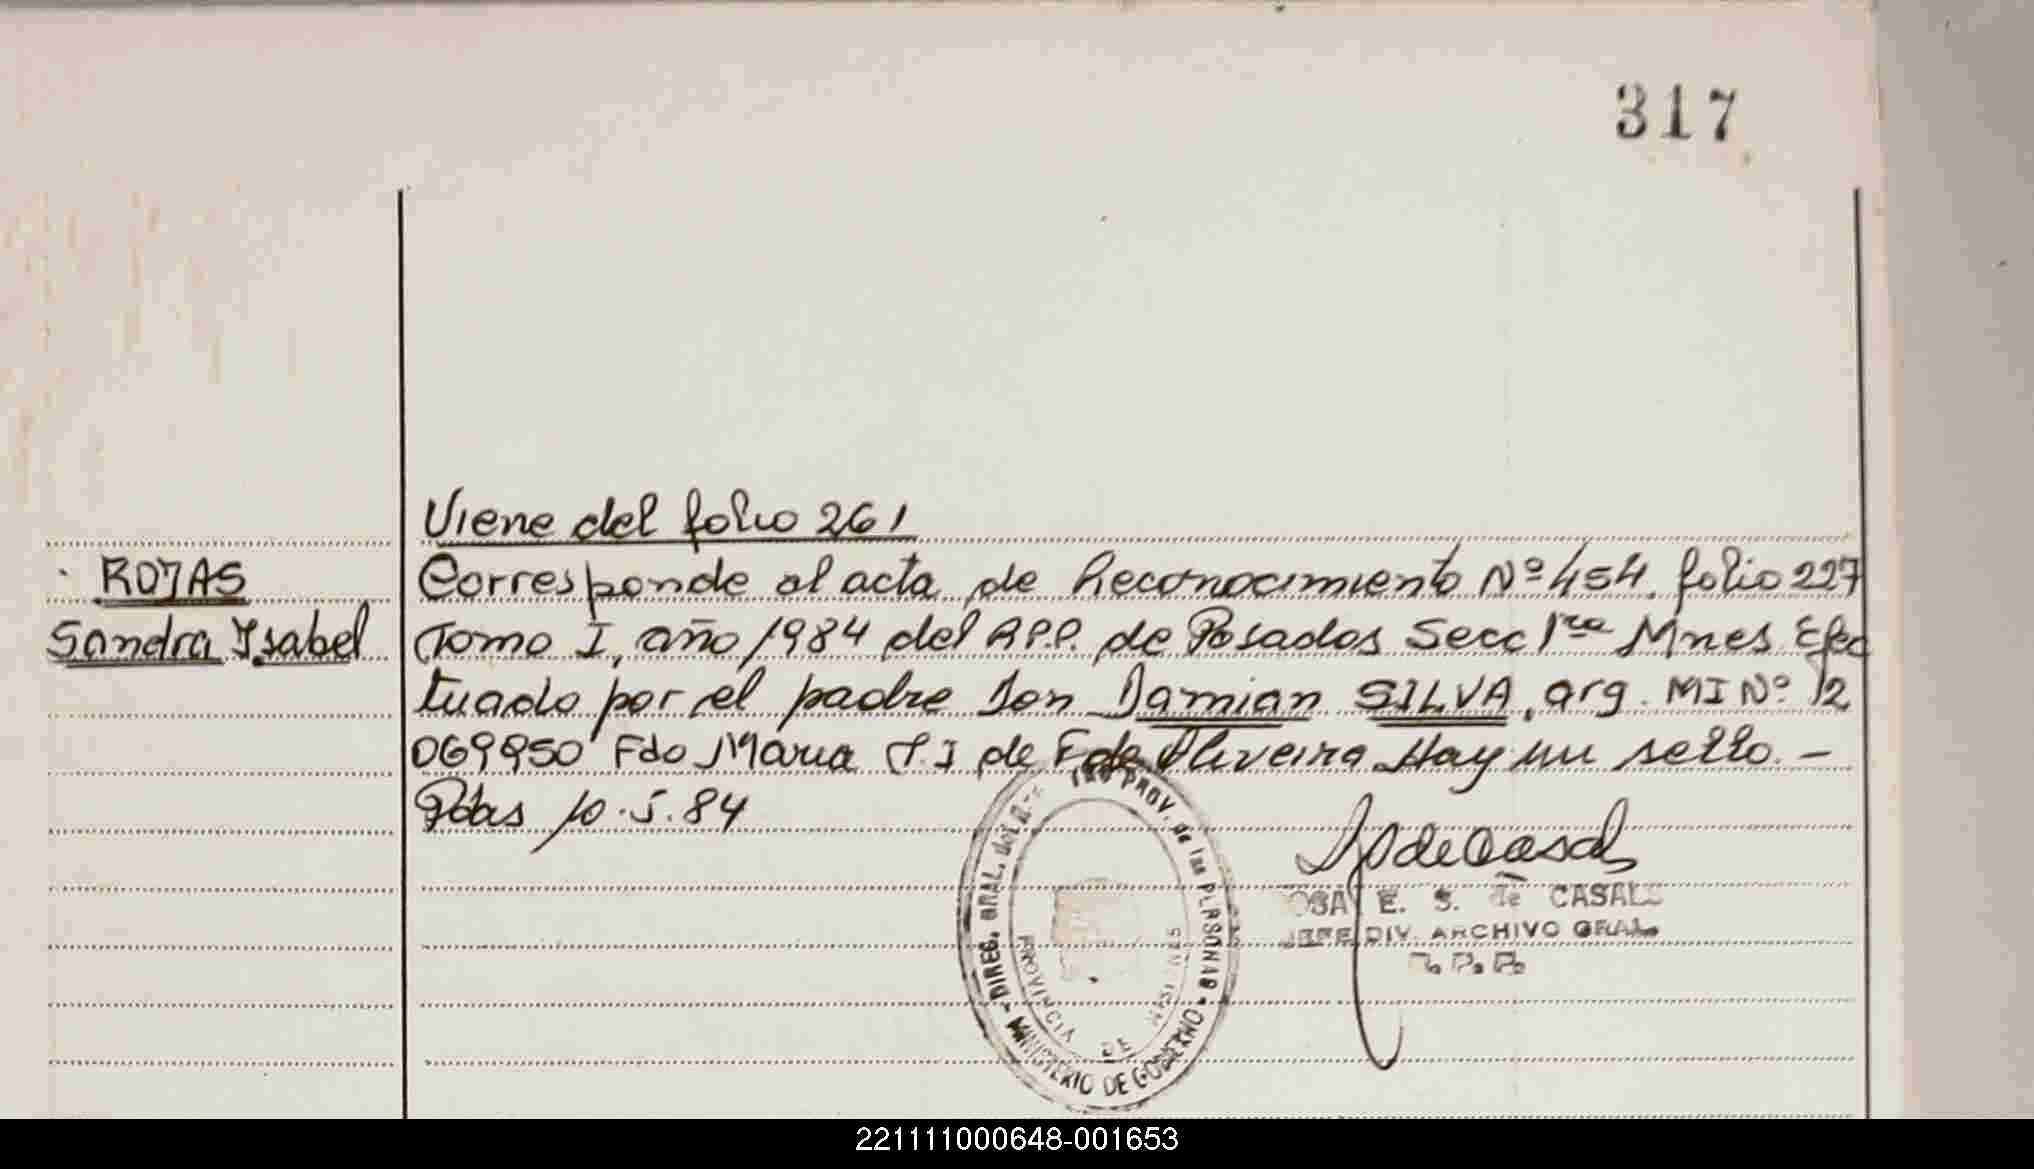 317
Viene del folio 261
ROJAS
Sandra Ysabel
Corresponde al acta de Reconocimiento Nº 454. folio 227
Tomo I, año 1984 del R.P.P. de Posadas Secc 1ra Mnes. Efec
tuado por el padre Don Damian SILVA, arg. MI Nº 12
069950 Fdo Maria T. I de F de Oliveira Hay un sello. -
Pdas 10.5.84
DIREG. GRAL. del PROV. de las PERSONAS - MINISTERIO DE GOBIERNO -
PROVINCIA DE MISIONES
OSA E. S. de CASALS
JEFE DIV. ARCHIVO GRAL.
R. P. P.
221111000648-001653